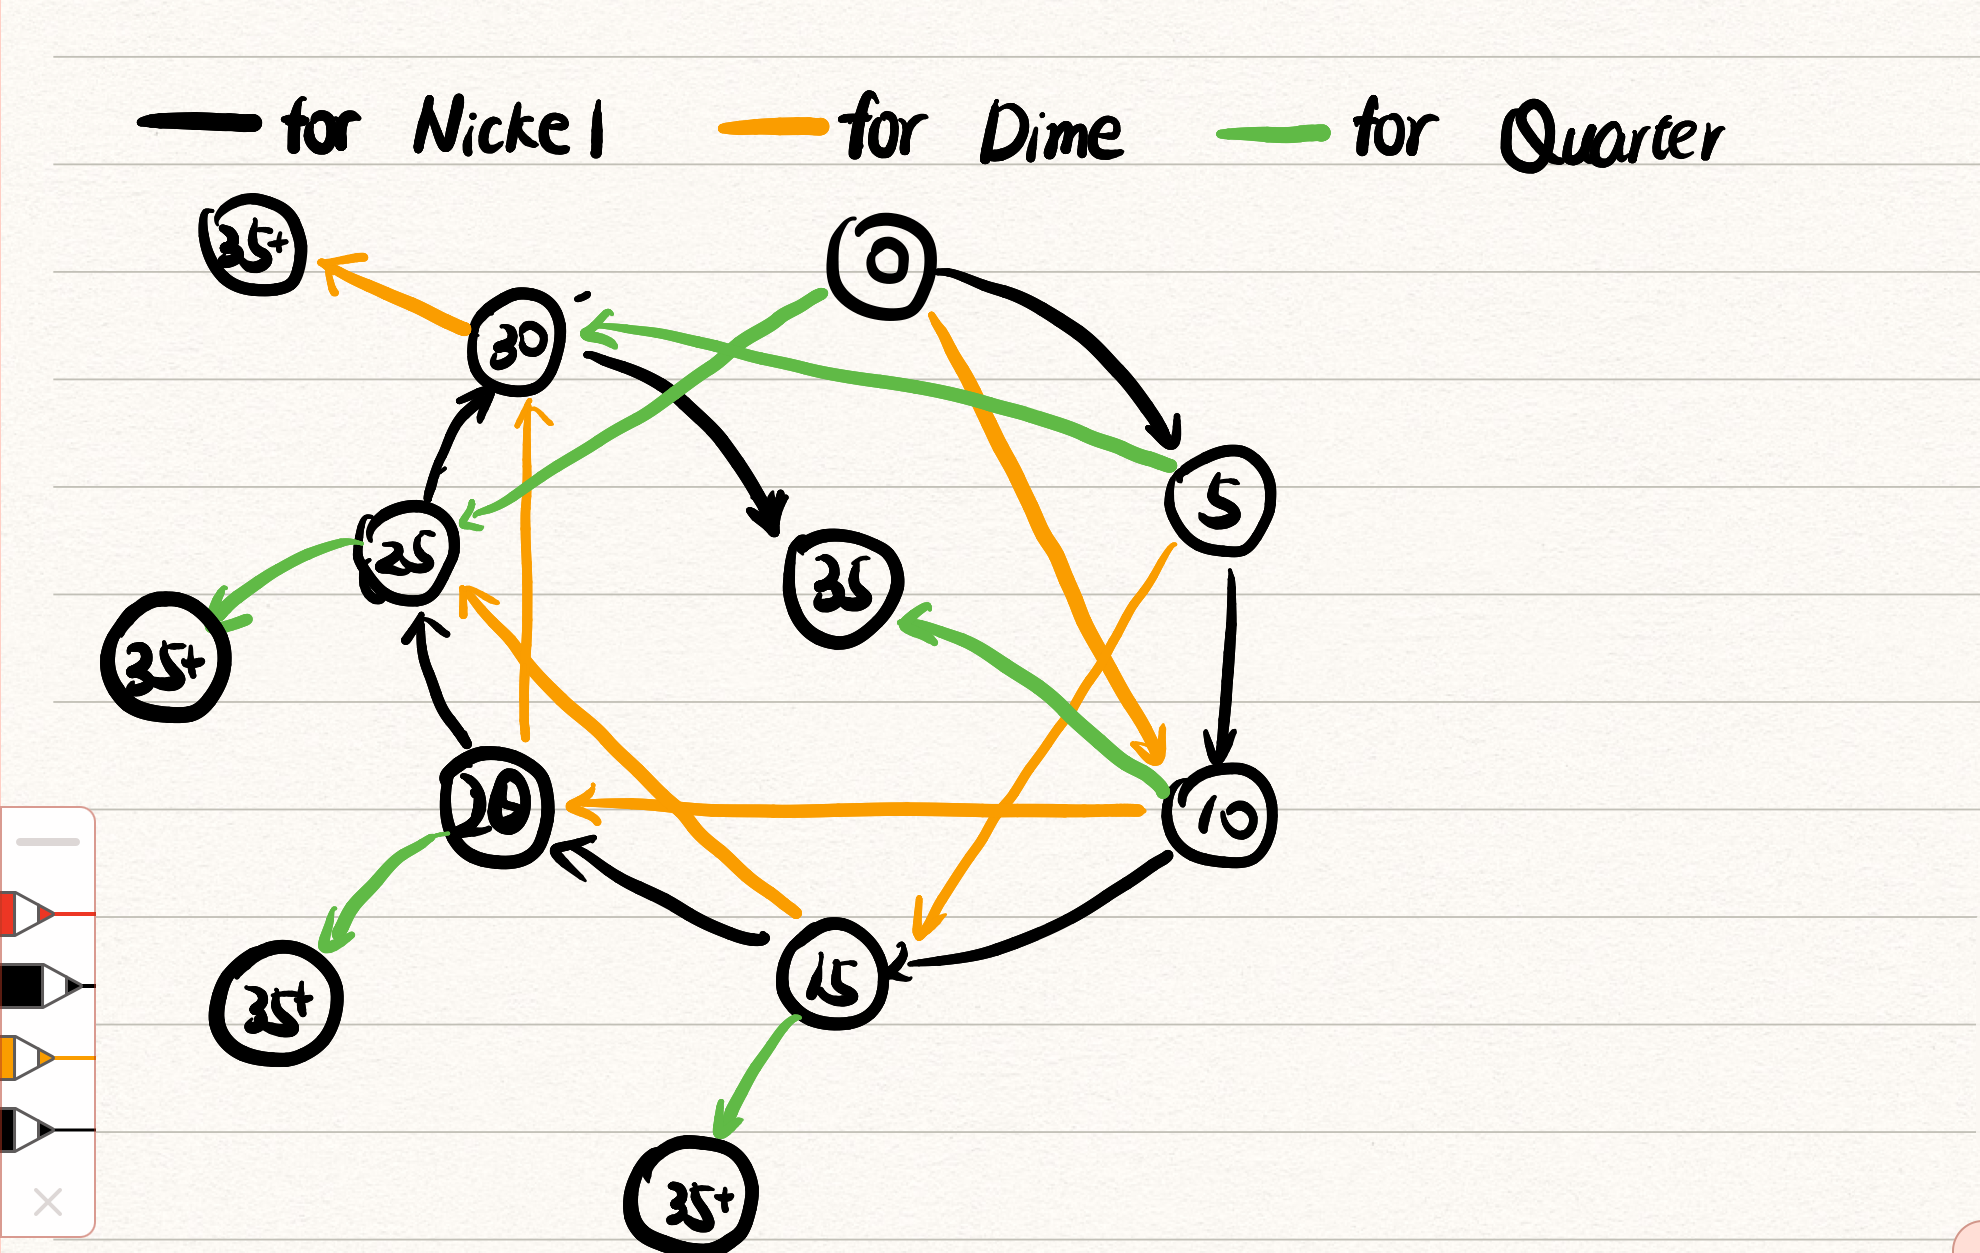 for Nickel for Dime for Quarter
35+
0
30
5
25
35
35+
20
10
15
35+
35+